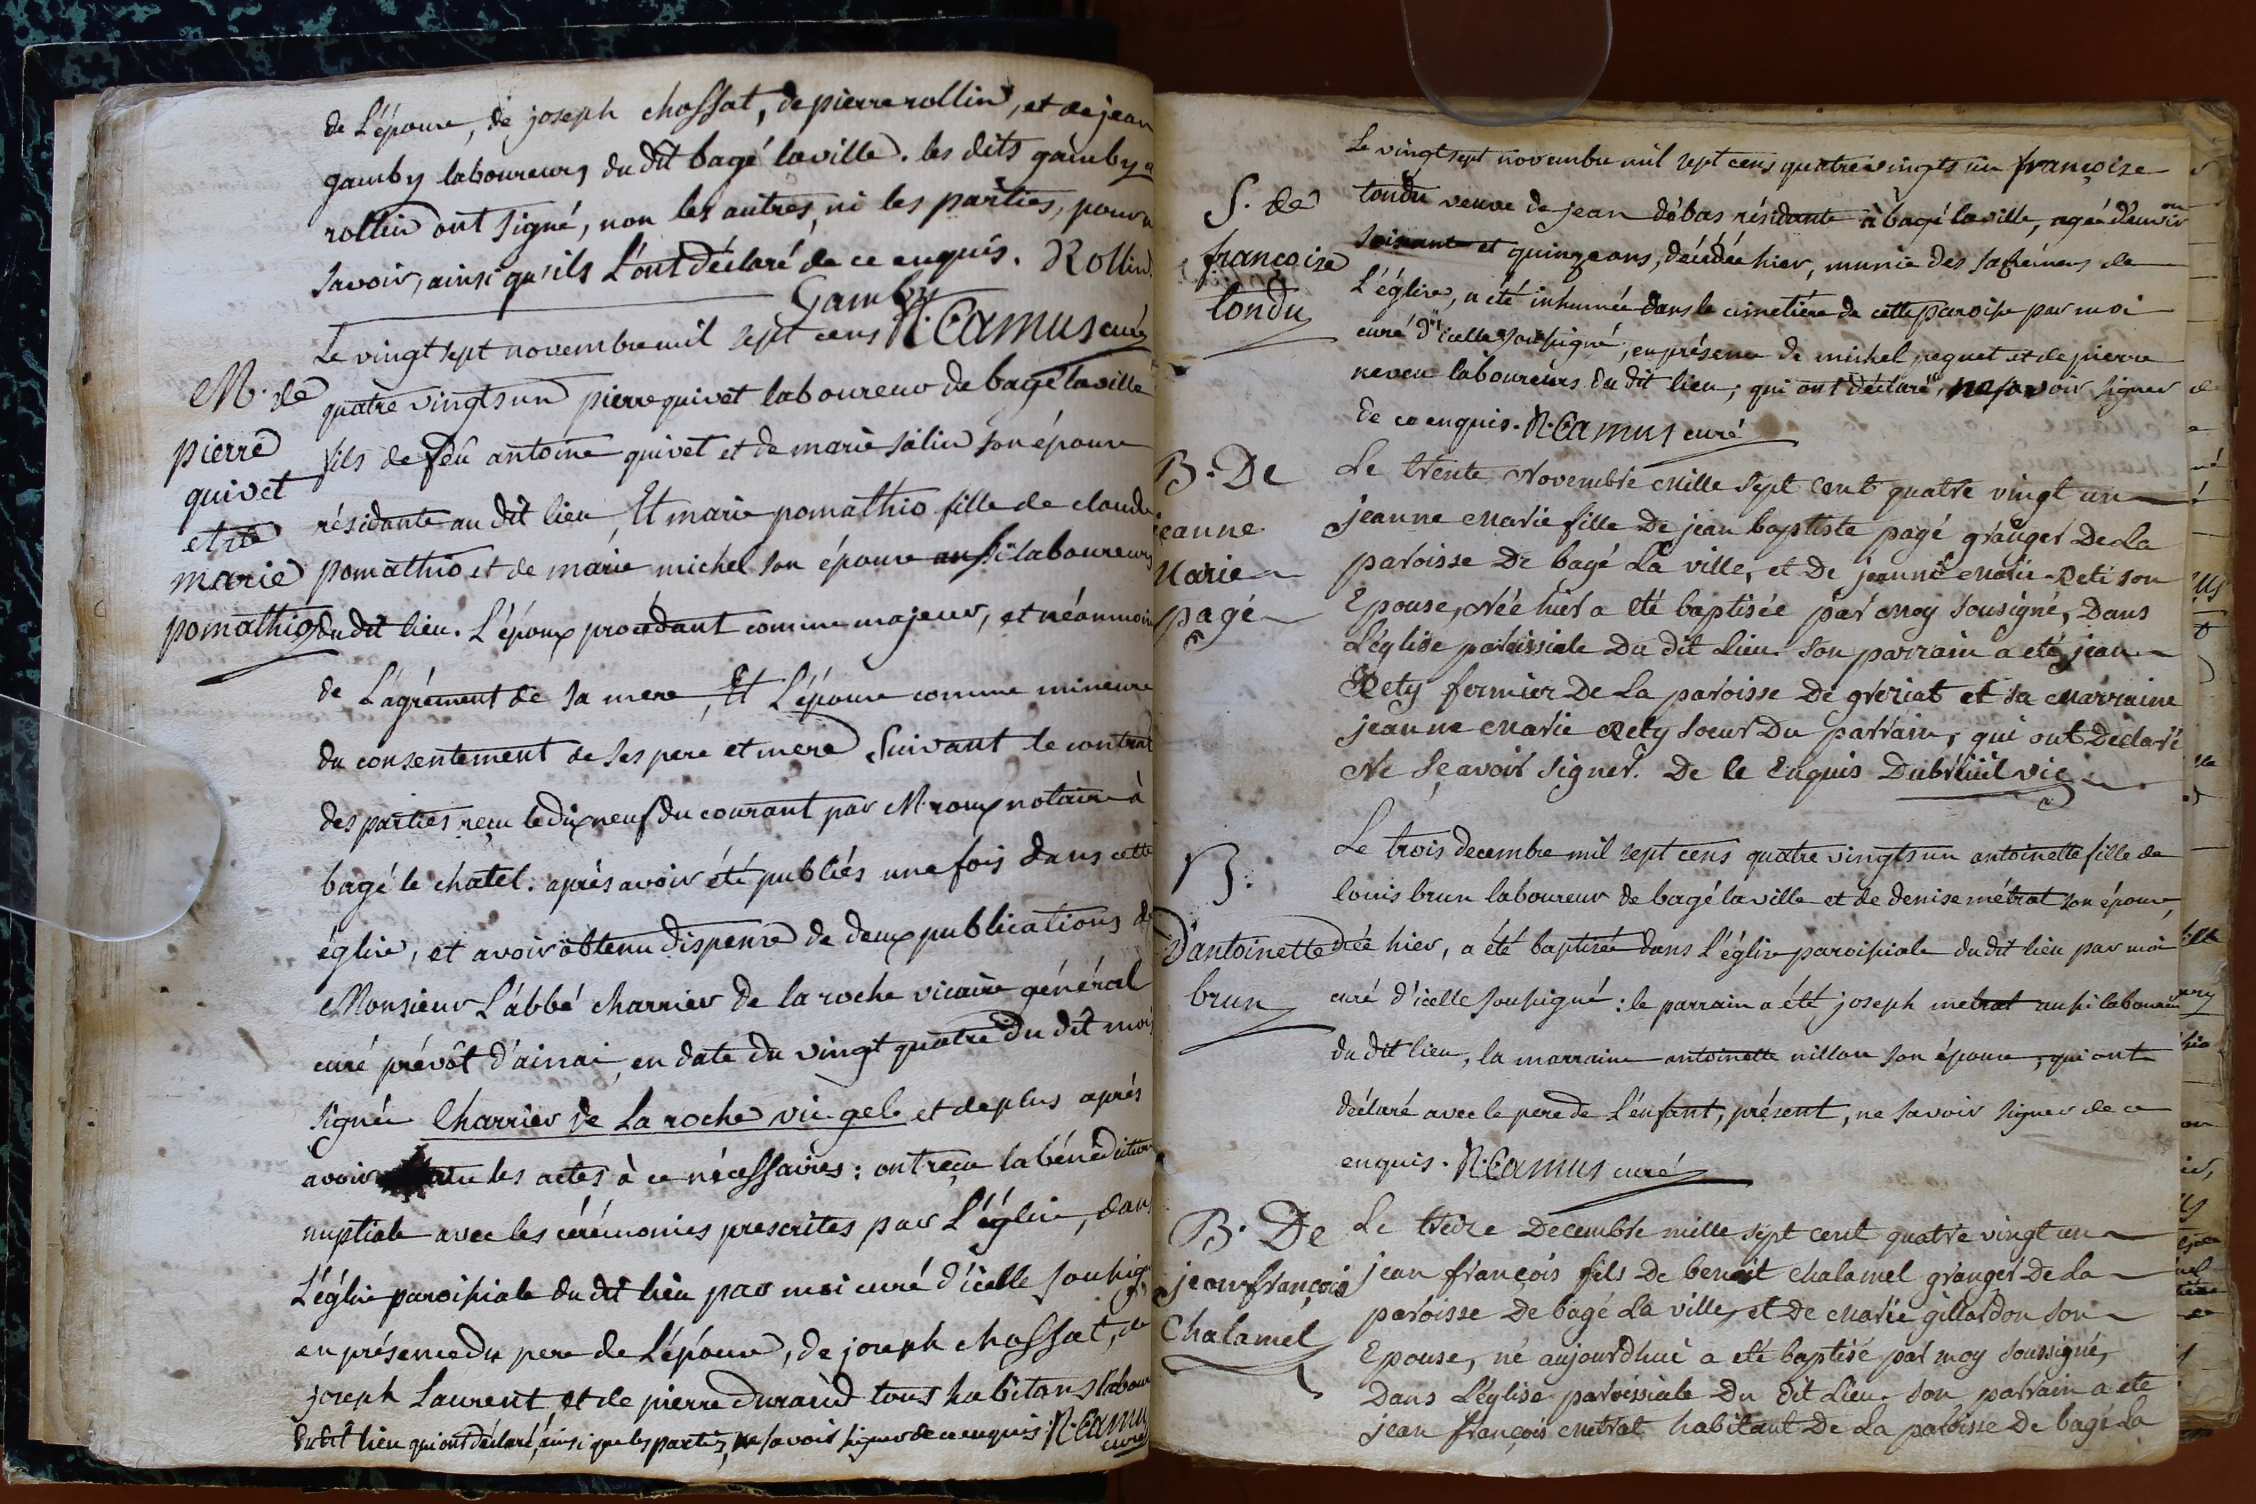 de L'épouse, de joseph chossat, de pierre rollin, et de jean
gamby laboureurs du dit bagé laville. les dits gamby et
rollin ont signé, non les autres, ni les parties, pour ne
savoir, ainsi qu'ils L'ont déclaré de ce enquis. Rollin
Gamby N. Camus curé
M. de
pierre
quivet
et de
marie
pomathio
Le vingt sept novembre mil sept cens
quatre vingts un pierre quivet laboureur de bagé laville
fils de feû antoine quivet et de marie salin son épouse
résidante au dit lieu, Et marie pomathio fille de claude
pomathio et de marie michel son épouse aussi laboureurs
du dit lieu. L'époux procédant comme majeur, et néanmoins
de L'agrément de sa mere, Et L'épouse comme mineure
du consentement de ses pere et mere Suivant le contrat
des parties reçu le dix neuf du courant par M. roux notaire à
bagé le châtel. aprés avoir été publiés une fois dans cette
église, et avoir obtenu dispense de deux publications de
Monsieur L'abbé charrier de la roche vicaire général
curé prévôt d'ainai, en date du vingt quatre du dit mois
signée Charrier de La roche vic gel. et de plus aprés
avoir les actes à ce nécessaires : ont reçu la bénédiction
nuptiale avec les cérémonies prescrites par L'église, dans
L'église paroissiale du dit lieu par moi curé d'icelle soussigné
en présence du pere de L'épouse, de joseph chossat, de
joseph Laurent et de pierre durand tous habitans labour
du dit lieu qui ont déclaré, ainsi que les parties, ne savoir signer de ce enquis. N. Camus
curé
S. de
françoise
tondu
Le vingt sept novembre mil sept cens quatre vingts un françoise
tondu veuve de jean débas résidante à bagé laville, agée d'environ
soixante et quinze ans, décédée hier, munie des sacrémens de
L'église, a été inhumée dans le cimetière de cette paroisse par moi
curé d'icelle soussigné, en présence de michel peguet et de pierre
neveu laboureurs du dit lieu, qui ont déclaré ne savoir signer
de ce enquis. N. Camus curé
B. De
jeanne
Marie
pagé
Le trente Novembre mille sept cent quatre vingt un
jeanne marie fille De jean baptiste pagé granger De La
paroisse De bagé La ville, et De jeanne marie Reti son
Epouse, Née hier a eté baptisée par moy sousigné, Dans
L'église paroissiale Du dit Lieu. Son parrain a eté jean
Rety fermier De La paroisse De greziat et sa marraine
jeanne marie Rety soeur Du parrain, qui ont Déclaré
Ne sçavoir signer. De ce Enquis Dubreüil vic
B.
D'antoinette
brun
Le trois decembre mil sept cens quatre vingts un antoinette fille de
louis brun laboureur de bagé laville et de denise métrat son épouse,
née hier, a été baptisée dans L'église paroissiale du dit lieu par moi
curé d'icelle soussigné : le parrain a été joseph metrat aussi laboureur
du dit lieu, la marraine antoinette nillon son épouse, qui ont
déclaré avec le pere de L'enfant, présent, ne savoir signer de ce
enquis. N. Camus curé
B. De
jean françois
Chalamel
Le treize Decembre mille sept cent quatre vingt un
jean françois fils De benoit chalamel granger De La
paroisse De bagé La ville, et De marie gillardon son
Epouse, né aujourdhui a eté baptisé par moy soussigné,
Dans L'église paroissiale Du dit Lieu. Son parrain a eté
jean françois metrat habitant De La paroisse De bagé La